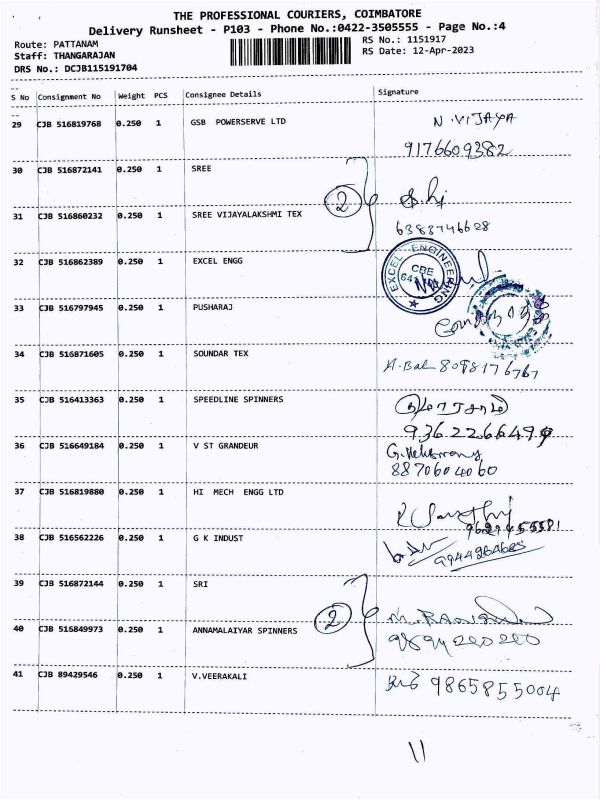 THE PROFESSIONAL COURIERS, COIMBATORE
Delivery Runsheet - P103 - Phone No.:0422-3505555 - Page No.:4
Route: PATTANAM
RS No.: 1151917
Staff: THANGARAJAN
RS Date: 12-Apr-2023
DRS No.: DCJB115191704
S No Consignment No Weight PCS Consignee Details Signature
29 CJB 516819768 0.250 1 GSB POWERSERVE LTD N.VIJAYA
9176609382
30 CJB 516872141 0.250 1 SREE
2
31 CJB 516860232 0.250 1 SREE VIJAYALAKSHMI TEX
6383746628
32 CJB 516862389 0.250 1 EXCEL ENGG
EXCEL ENGINEERING
CBE
33 CJB 516797945 1 0.250 PUSHARAJ
34 CJB 516871605 0.250 1 SOUNDAR TEX
35 CJB 516413363 0.250 1 SPEEDLINE SPINNERS
36 CJB 516649184 0.250 1 V ST GRANDEUR
8870604060
37 CJB 516819880 0.250 1 HI MECH ENGG LTD
38 CJB 516562226 0.250 1 G K INDUST
9944264685
39 CJB 516872144 0.250 1 SRI
2
40 CJB 516849973 0.250 1 ANNAMALAIYAR SPINNERS
9894220220
41 CJB 89429546 0.250 1 V.VEERAKALI
9865855004
11